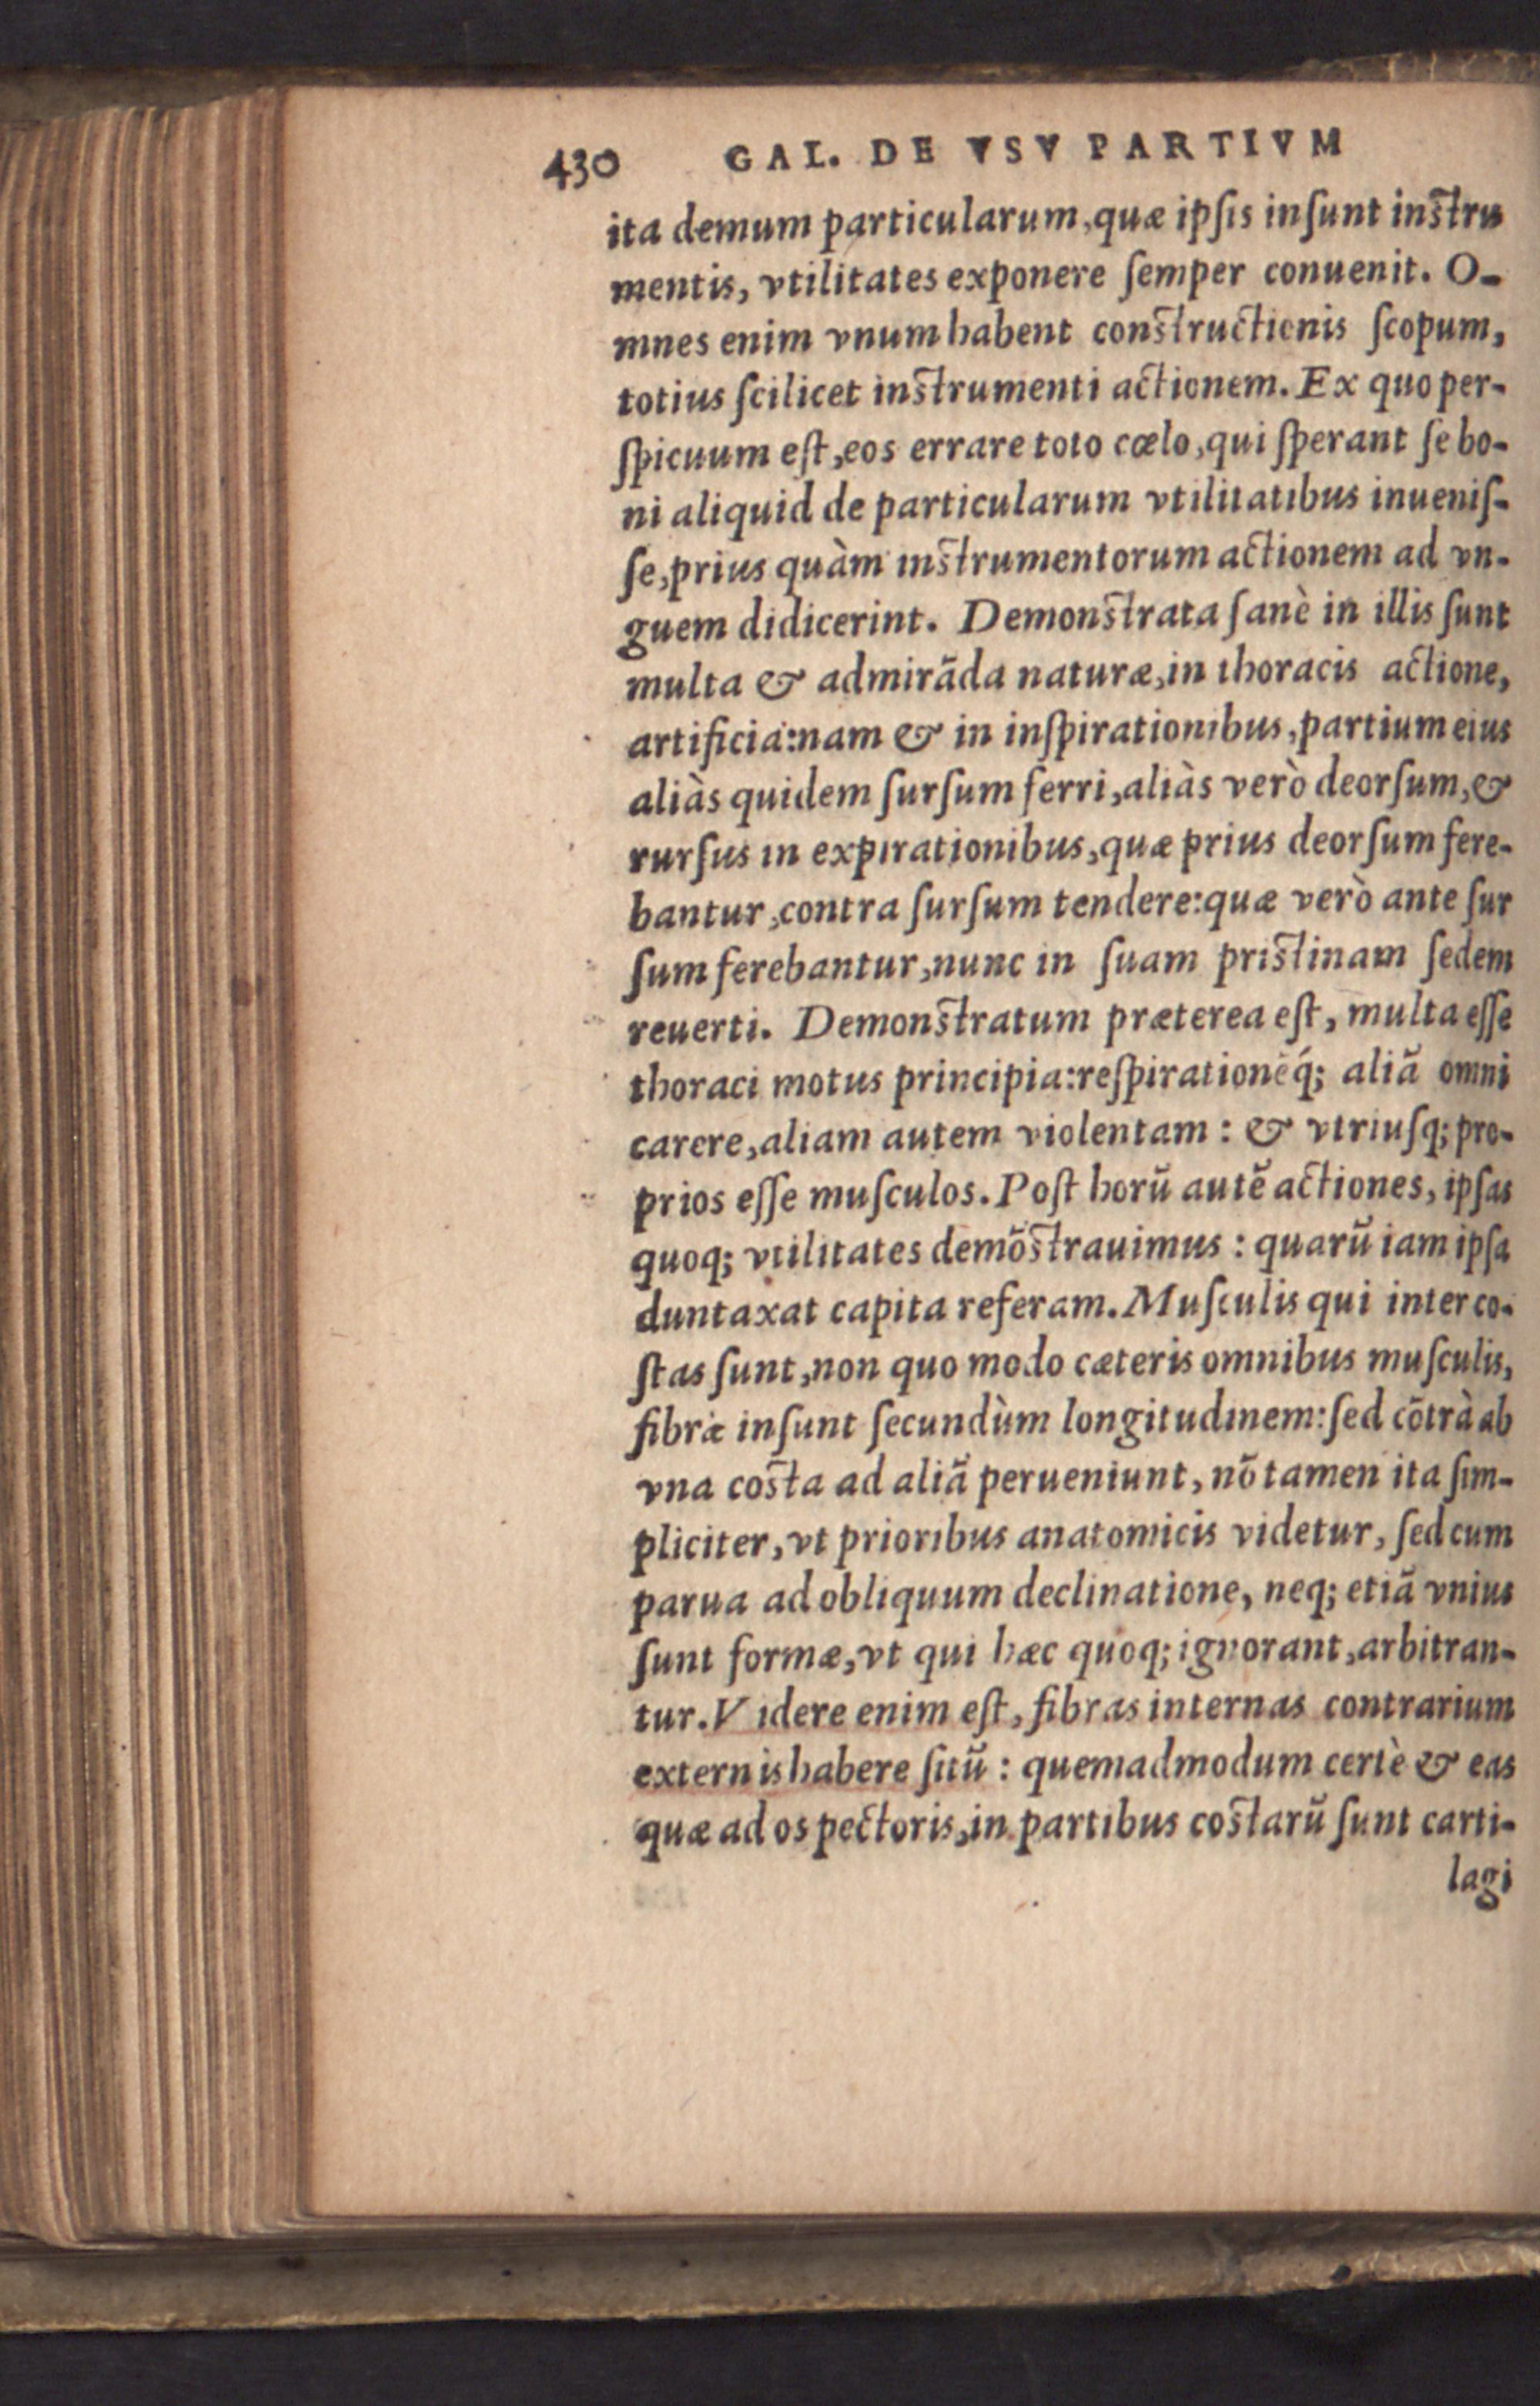 430 GAL. DE VSV PARTIVM
ita demum particularum, quæ ipſis inſunt inſtru
mentis, vtilitates exponere ſemper conuenit. O-
mnes enim vnum habent conſtructionis ſcopum,
totius ſcilicet inſtrumenti actionem. Ex quo per-
ſpicuum eſt, eos errare toto cœlo, qui ſperant ſe bo-
ni aliquid de particularum vtilitatibus inueniſ-
ſe, prius quàm inſtrumentorum actionem ad vn-
guem didicerint. Demonſtrata ſanè in illis ſunt
multa & admirãda naturæ, in thoracis actione,
artificia: nam & in inſpirationibus, partium eius
aliàs quidem ſurſum ferri, aliàs verò deorſum, &
rurſus in expirationibus, quæ prius deorſum fere-
bantur, contra ſurſum tendere: quæ verò ante ſur
ſum ferebantur, nunc in ſuam priſtinam ſedem
reuerti. Demonſtratum præterea eſt, multa eſſe
thoraci motus principia: reſpirationẽq́; aliã omni
carere, aliam autem violentam: & vtriuſq; pro-
prios eſſe muſculos. Poſt horũ autẽ actiones, ipſas
quoq; vtilitates demõſtrauimus: quarũ iam ipſa
duntaxat capita referam. Muſculis qui inter co-
ſtas ſunt, non quo modo cæteris omnibus muſculis,
fibræ inſunt ſecundùm longitudinem: ſed cõtrà ab
vna coſta ad aliã perueniunt, nõ tamen ita ſim-
pliciter, vt prioribus anatomicis videtur, ſed cum
parua ad obliquum declinatione, neq; etiã vnius
ſunt formæ, vt qui hæc quoq; ignorant, arbitran-
tur. Videre enim eſt, fibras internas contrarium
externis habere ſitũ: quemadmodum certè & eas
quæ ad os pectoris, in partibus coſtarũ ſunt carti-
lagi